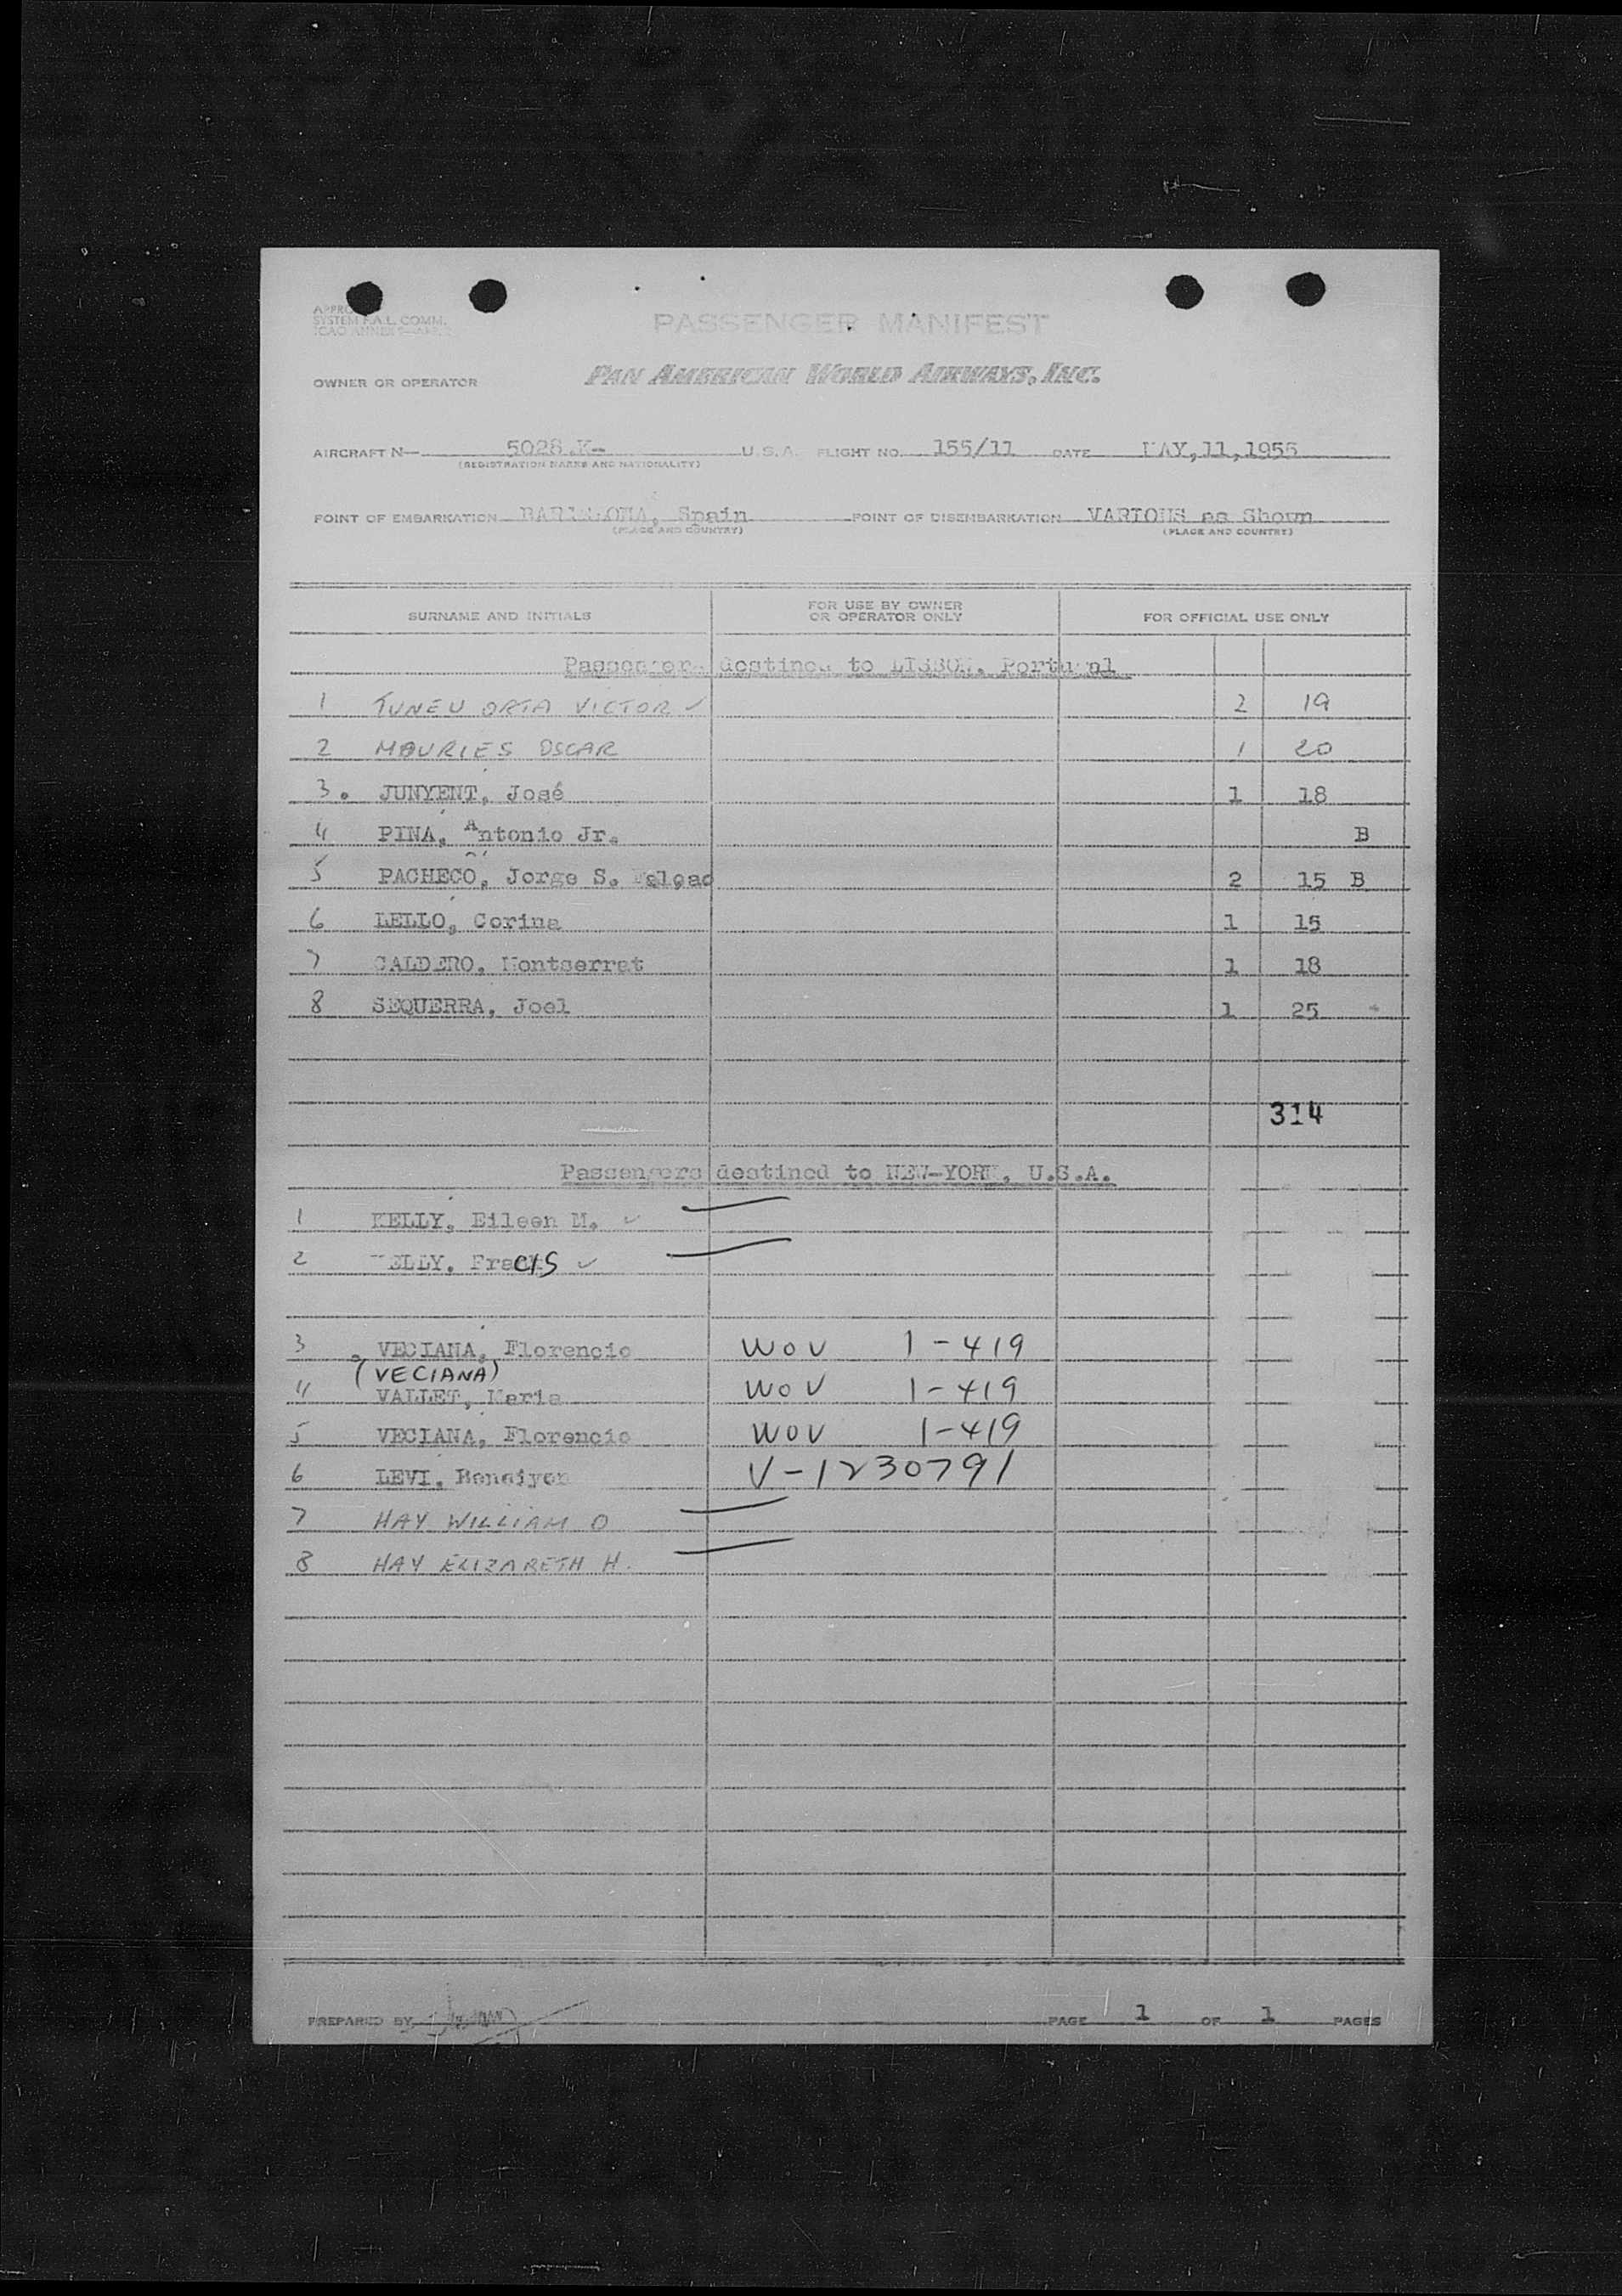 SYSTEM F.A.L. COMM.
PASSENGER MANIFEST
OWNER OR OPERATOR PAN AMERICAN WORLD AIRWAYS, INC.
AIRCRAFT N— 5028.K- U.S.A. FLIGHT NO. 155/11 DATE MAY,11,1955
(REGISTRATION MARKS AND NATIONALITY)
POINT OF EMBARKATION BARCELONA, Spain POINT OF DISEMBARKATION VARIOUS as Shown
(PLACE AND COUNTRY) (PLACE AND COUNTRY)
SURNAME AND INITIALS FOR USE BY OWNER OR OPERATOR ONLY FOR OFFICIAL USE ONLY
Passengers destined to LISBON, Portugal
1 TUNEU ORTA VICTOR ✓ 2 19
2 MAURIES OSCAR 1 20
3. JUNYENT, José 1 18
4 PINA, Antonio Jr. B
5 PACHECO, Jorge S. 2 15 B
6 LELLO, Corina 1 15
7 CALDERO, Montserrat 1 18
8 SEQUERRA, Joel 1 25
314
Passengers destined to NEW-YORK, U.S.A.
1 KELLY, Eileen M. ✓
2 KELLY, Francis ✓
3 VECIANA, Florencio WOV 1-419
(VECIANA)
4 VALLET, Maria WOV 1-419
5 VECIANA, Florencio WOV 1-419
6 LEVI, V-1230791
7 HAY WILLIAM O
8 HAY ELIZABETH H.
PREPARED BY PAGE 1 OF 1 PAGES